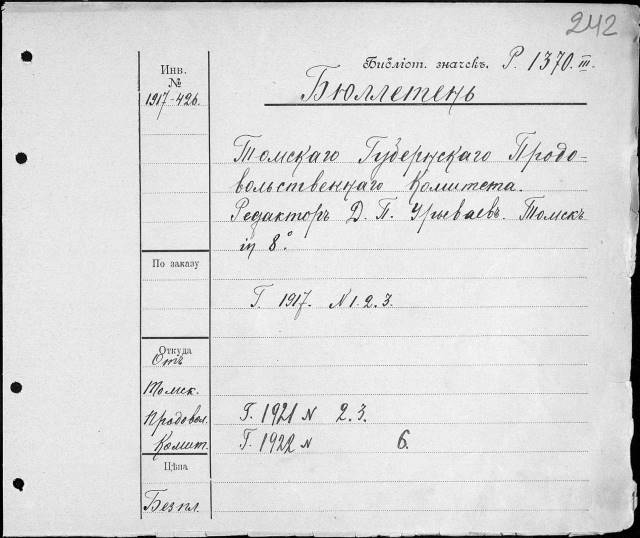 242
Библіот. значекъ. Р. 1370. III.
Бюллетень
Инв.
№
1917-426.
Томскаго Губернскаго Продо-
вольственнаго Комитета.
Редакторъ Д. П. Урываевъ. Томскъ
in 8°.
По заказу
Г. 1917. N 1. 2. 3.
Откуда
Отъ
Томск.
Продовол.
Комит.
Г. 1921 N 2. 3.
Г. 1922 N 6.
Цѣна
Безпл.